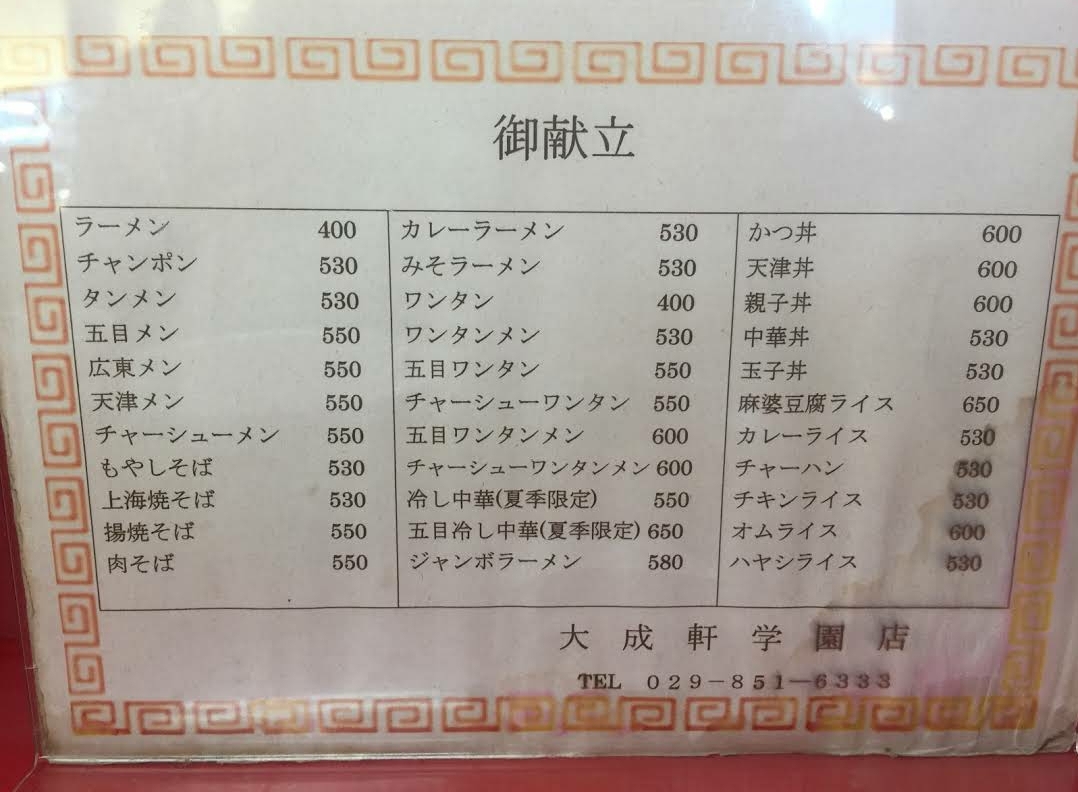 御献立
ラーメン 400
チャンポン 530
タンメン 530
五目メン 550
広東メン 550
天津メン 550
チャーシューメン 550
もやしそば 530
上海焼そば 530
揚焼そば 550
肉そば 550
カレーラーメン 530
みそラーメン 530
ワンタン 400
ワンタンメン 530
五目ワンタン 550
チャーシューワンタン 550
五目ワンタンメン 600
チャーシューワンタンメン 600
冷し中華(夏季限定) 550
五目冷し中華(夏季限定) 650
ジャンボラーメン 580
かつ丼 600
天津丼 600
親子丼 600
中華丼 530
玉子丼 530
麻婆豆腐ライス 650
カレーライス 530
チャーハン 530
チキンライス 530
オムライス 600
ハヤシライス 530
大成軒学園店
TEL 029-851-6333